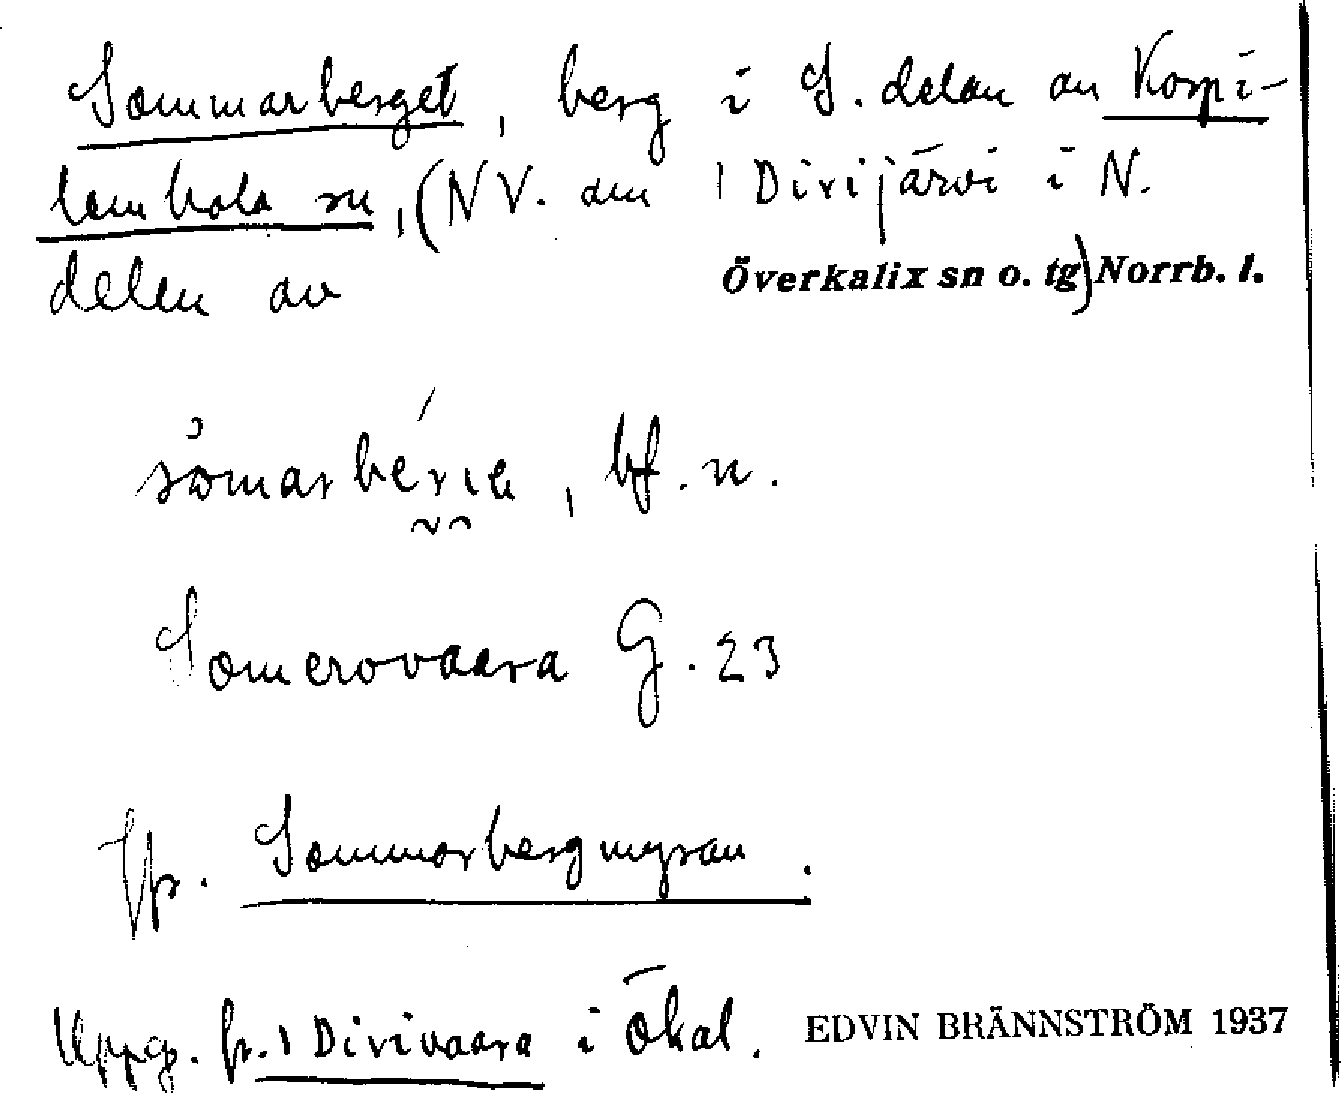 Sommarberget, berg i S. delen av Korpi-
lombolo sn, (NV. om 1 Divijärvi i N.
delen av Överkalix sn o. tg) Norrb. l.
bf. n.
Somerovaara G. 23
Jfr. Sommarbergmyran.
Uppg. fr. 1 Divivaara i Ökal. EDVIN BRÄNNSTRÖM 1937